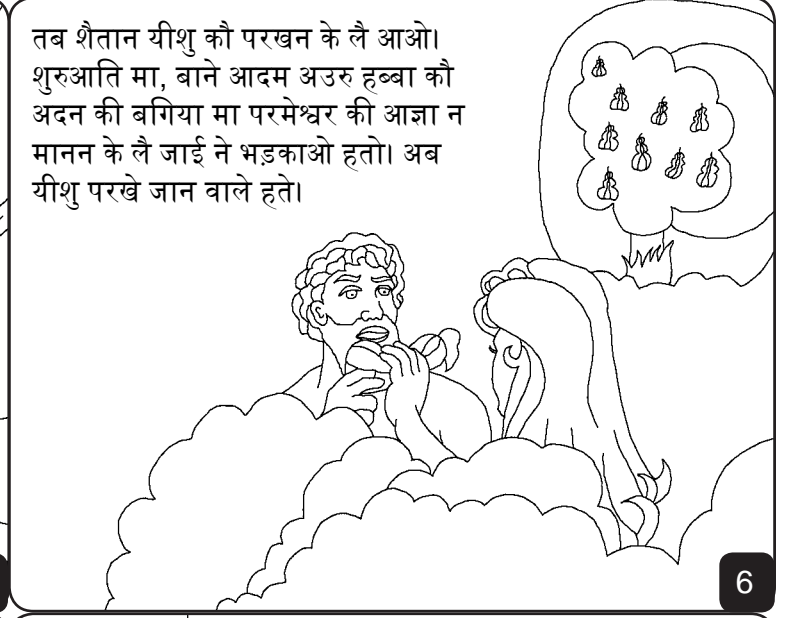 तब शैतान यीशु कौ परखन के लै आओ।
शुरुआति मा, बाने आदम अउरु हब्बा कौ
अदन की बगिया मा परमेश्वर की आज्ञा न
मानन के लै जाई ने भड़काओ हतो। अब
यीशु परखे जान वाले हते।
6